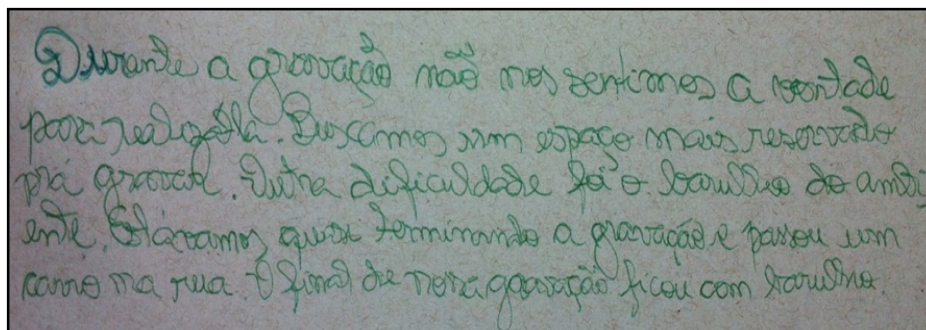 Durante a gravação não nos sentimos a vontade
para realizá-la. Buscamos um espaço mais reservado
pra gravar. Outra dificuldade foi o barulho do ambi
ente. Estávamos quase terminando a gravação e passou um
carro na rua. O final de nossa gravação ficou com barulho.